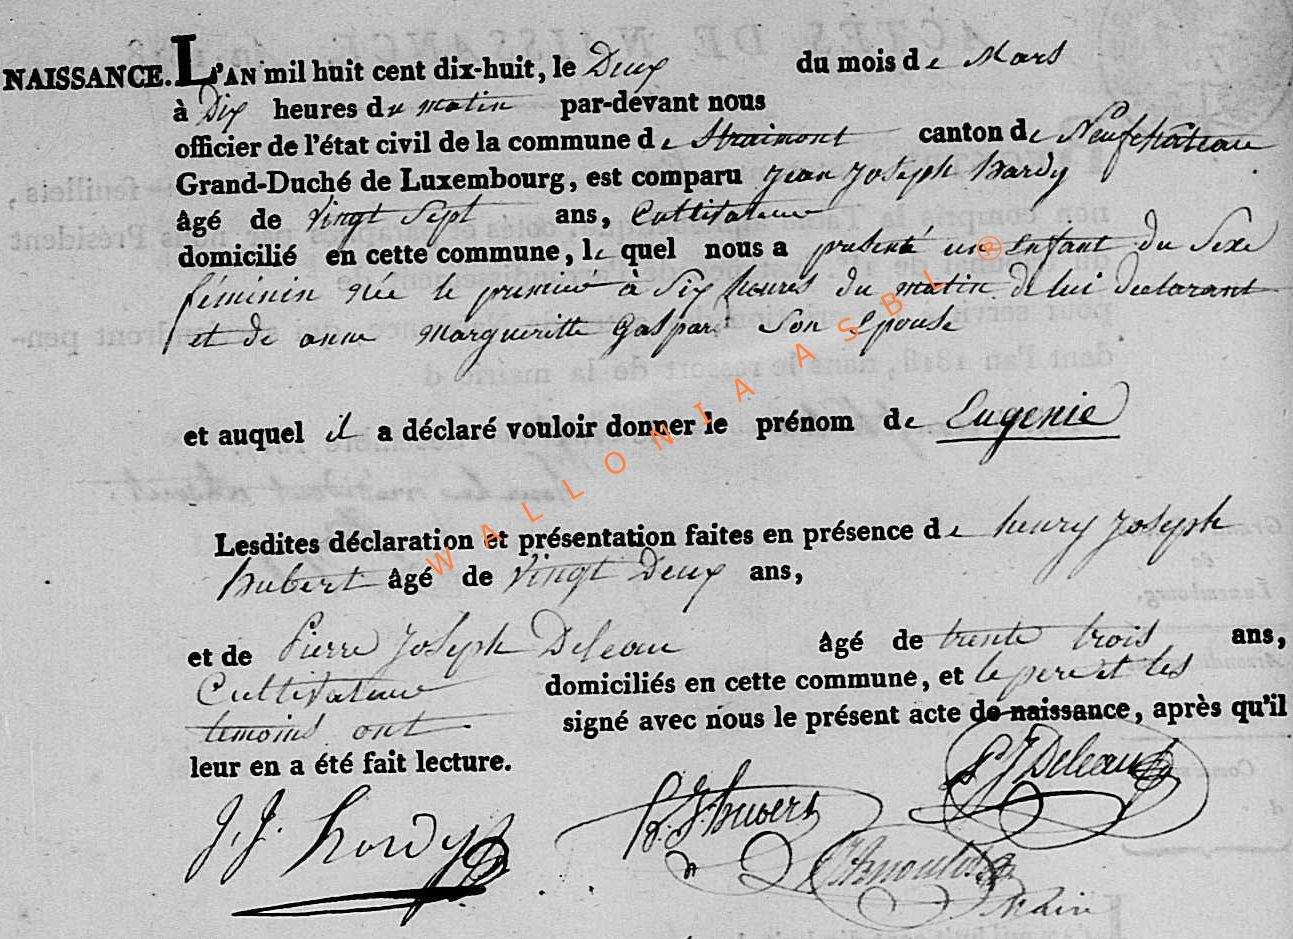 NAISSANCE. L'AN mil huit cent dix-huit, le Deux du mois de Mars
à Dix heures du matin par-devant nous
officier de l'état civil de la commune de Straimont canton de Neufchateau
Grand-Duché de Luxembourg, est comparu jean joseph hardy
âgé de vingt Sept ans, Cultivateur
domicilié en cette commune, le quel nous a presenté un Enfant du Sexe
féminin née le premier à Six heures du matin de lui declarant
et de anne margueritte Gaspard Son Epouse
et auquel il a déclaré vouloir donner le prénom de Eugenie
Lesdites déclaration et présentation faites en présence de henry joseph
hubert âgé de vingt Deux ans,
et de Pierre joseph Deleau âgé de trente trois ans,
Cultivateur domiciliés en cette commune, et le pere et les
temoins ont signé avec nous le présent acte de naissance, après qu'il
leur en a été fait lecture.
P J Deleau
J. J. hardy h. J. hubert
Maire
WALLONIA ASBL ®